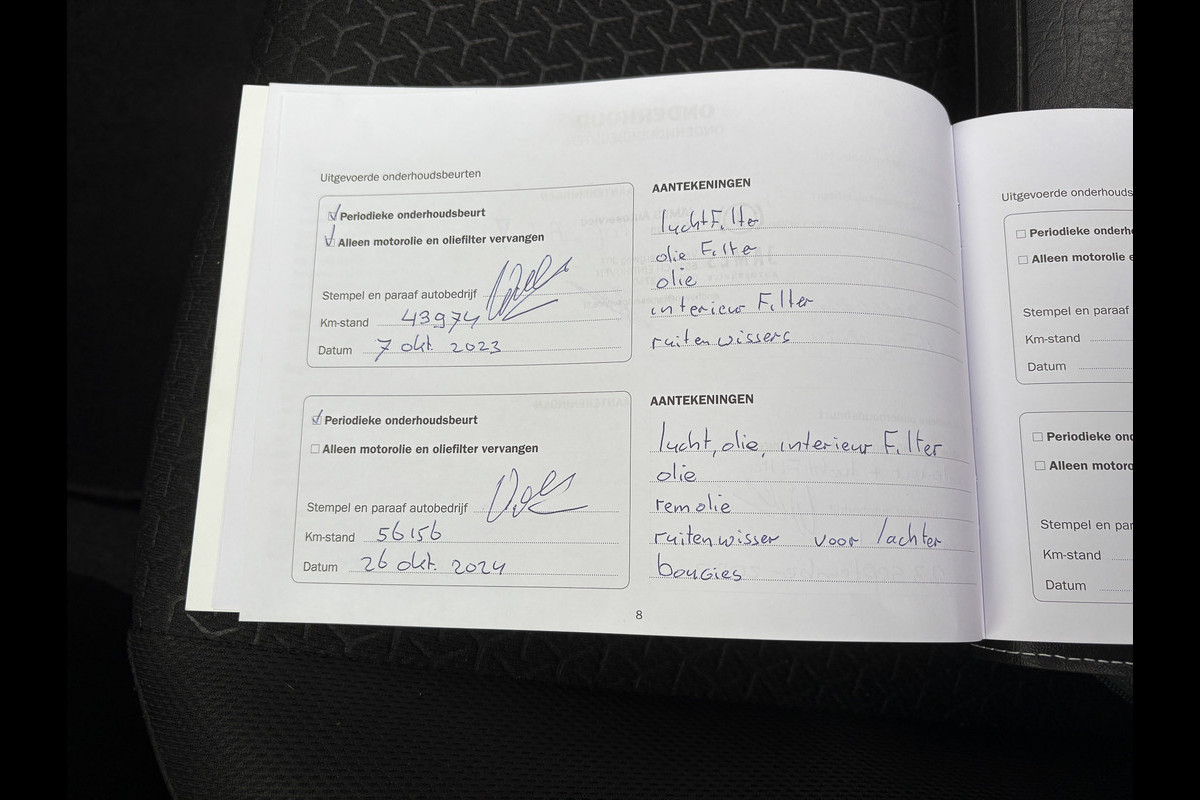 Uitgevoerde onderhoudsbeurten
Periodieke onderhoudsbeurt
Alleen motorolie en oliefilter vervangen
Stempel en paraaf autobedrijf
Km-stand 43974
Datum 7 okt. 2023
AANTEKENINGEN
luchtFilter
olie Filter
olie
interieur Filter
ruitenwissers
Periodieke onderhoudsbeurt
Alleen motorolie en oliefilter vervangen
Stempel en paraaf autobedrijf
Km-stand 56156
Datum 26 okt. 2024
AANTEKENINGEN
lucht, olie, interieur Filter
olie
remolie
ruitenwisser voor/achter
bougies
8
Uitgevoerde onderhouds
Periodieke onderh
Alleen motorolie e
Stempel en paraaf
Km-stand
Datum
Periodieke ond
Alleen motoro
Stempel en par
Km-stand
Datum